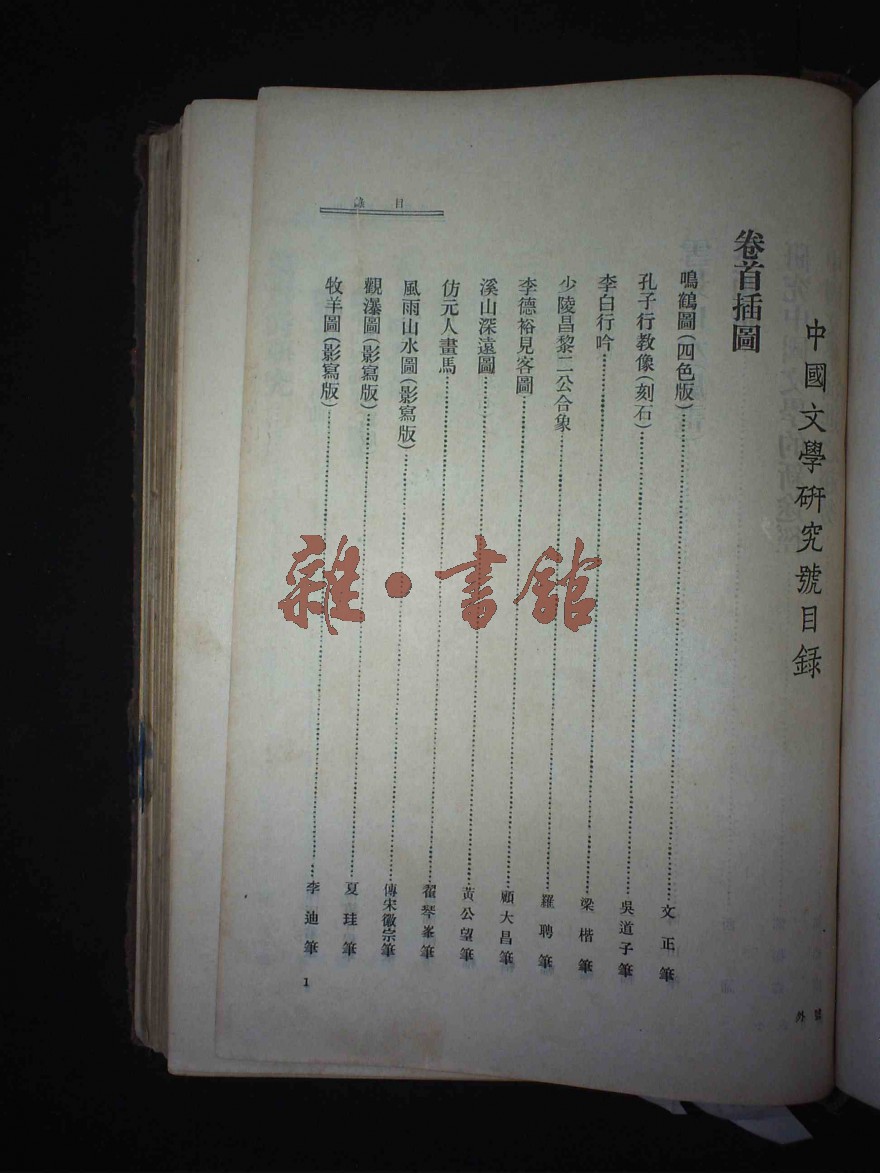 中國文學研究號目録
卷首揷圖
鳴鶴圖(四色版)……文正筆
孔子行教像(刻石)……吳道子筆
李白行吟……梁楷筆
少陵昌黎二公合象……羅聘筆
李德裕見客圖……顧大昌筆
溪山深遠圖……黃公望筆
仿元人畫馬……翟琴峯筆
風雨山水圖(影寫版)……傳宋徽宗筆
觀瀑圖(影寫版)……夏珪筆
牧羊圖(影寫版)……李迪筆
目錄
1
號外
雜·書館